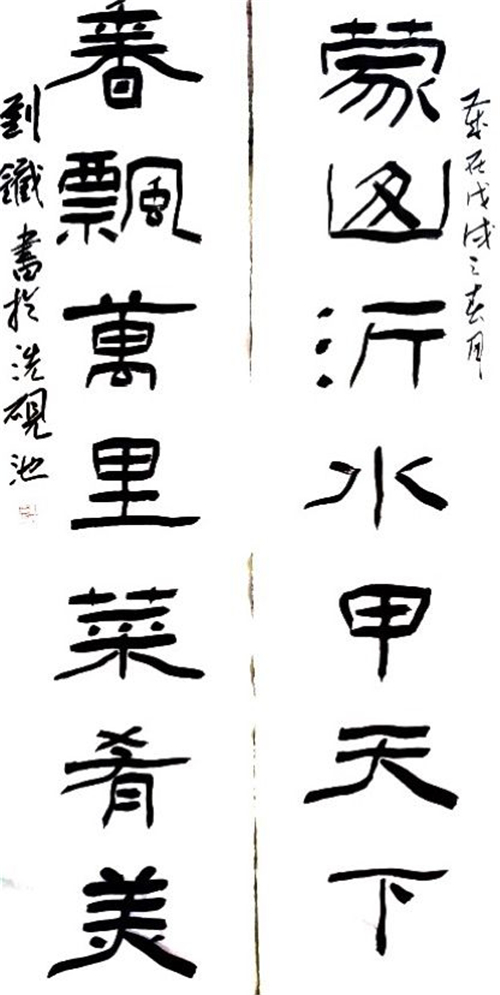 歲在戊戌之春月
蒙山沂水甲天下
香飄萬里菜肴美
劉鐵書於洗硯池